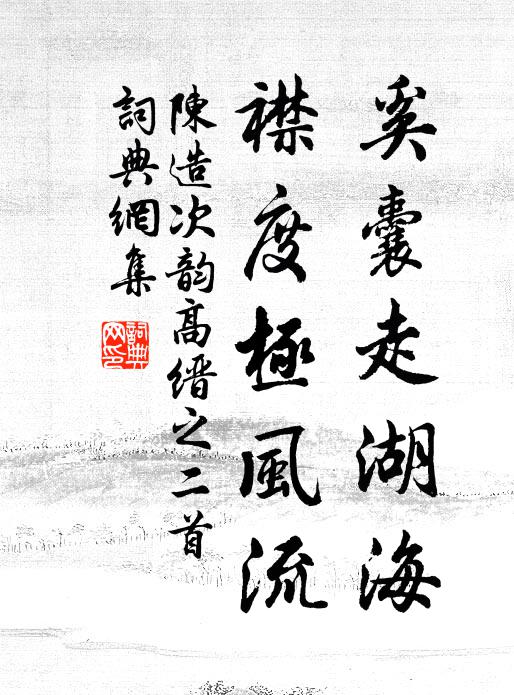 奚囊走湖海
襟度極風流
陳造次韵高缙之二首
詞典網集
詞典
网印